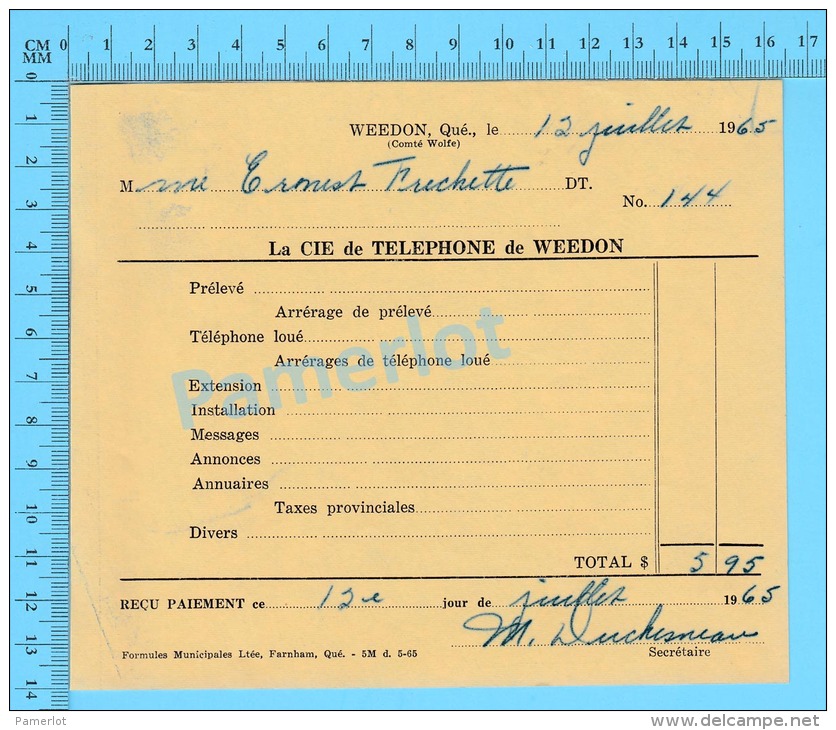 CM 0 1 2 3 4 5 6 7 8 9 10 11 12 13 14 15 16 17
MM
0 1 2 3 4 5 6 7 8 9 10 11 12 13 14
WEEDON, Qué., le 12 juillet 1965
(Comté Wolfe)
M me Ernest Frechette DT.
No. 144
La CIE de TELEPHONE de WEEDON
Prélevé
Arrérage de prélevé
Téléphone loué
Arrérages de téléphone loué
Pamerlot
Extension
Installation
Messages
Annonces
Annuaires
Taxes provinciales
Divers
TOTAL $ 5 95
REÇU PAIEMENT ce 12e jour de juillet 1965
M. Duchesneau
Formules Municipales Ltée, Farnham, Qué. - 5M d. 5-65 Secrétaire
Pamerlot
www.delcampe.net